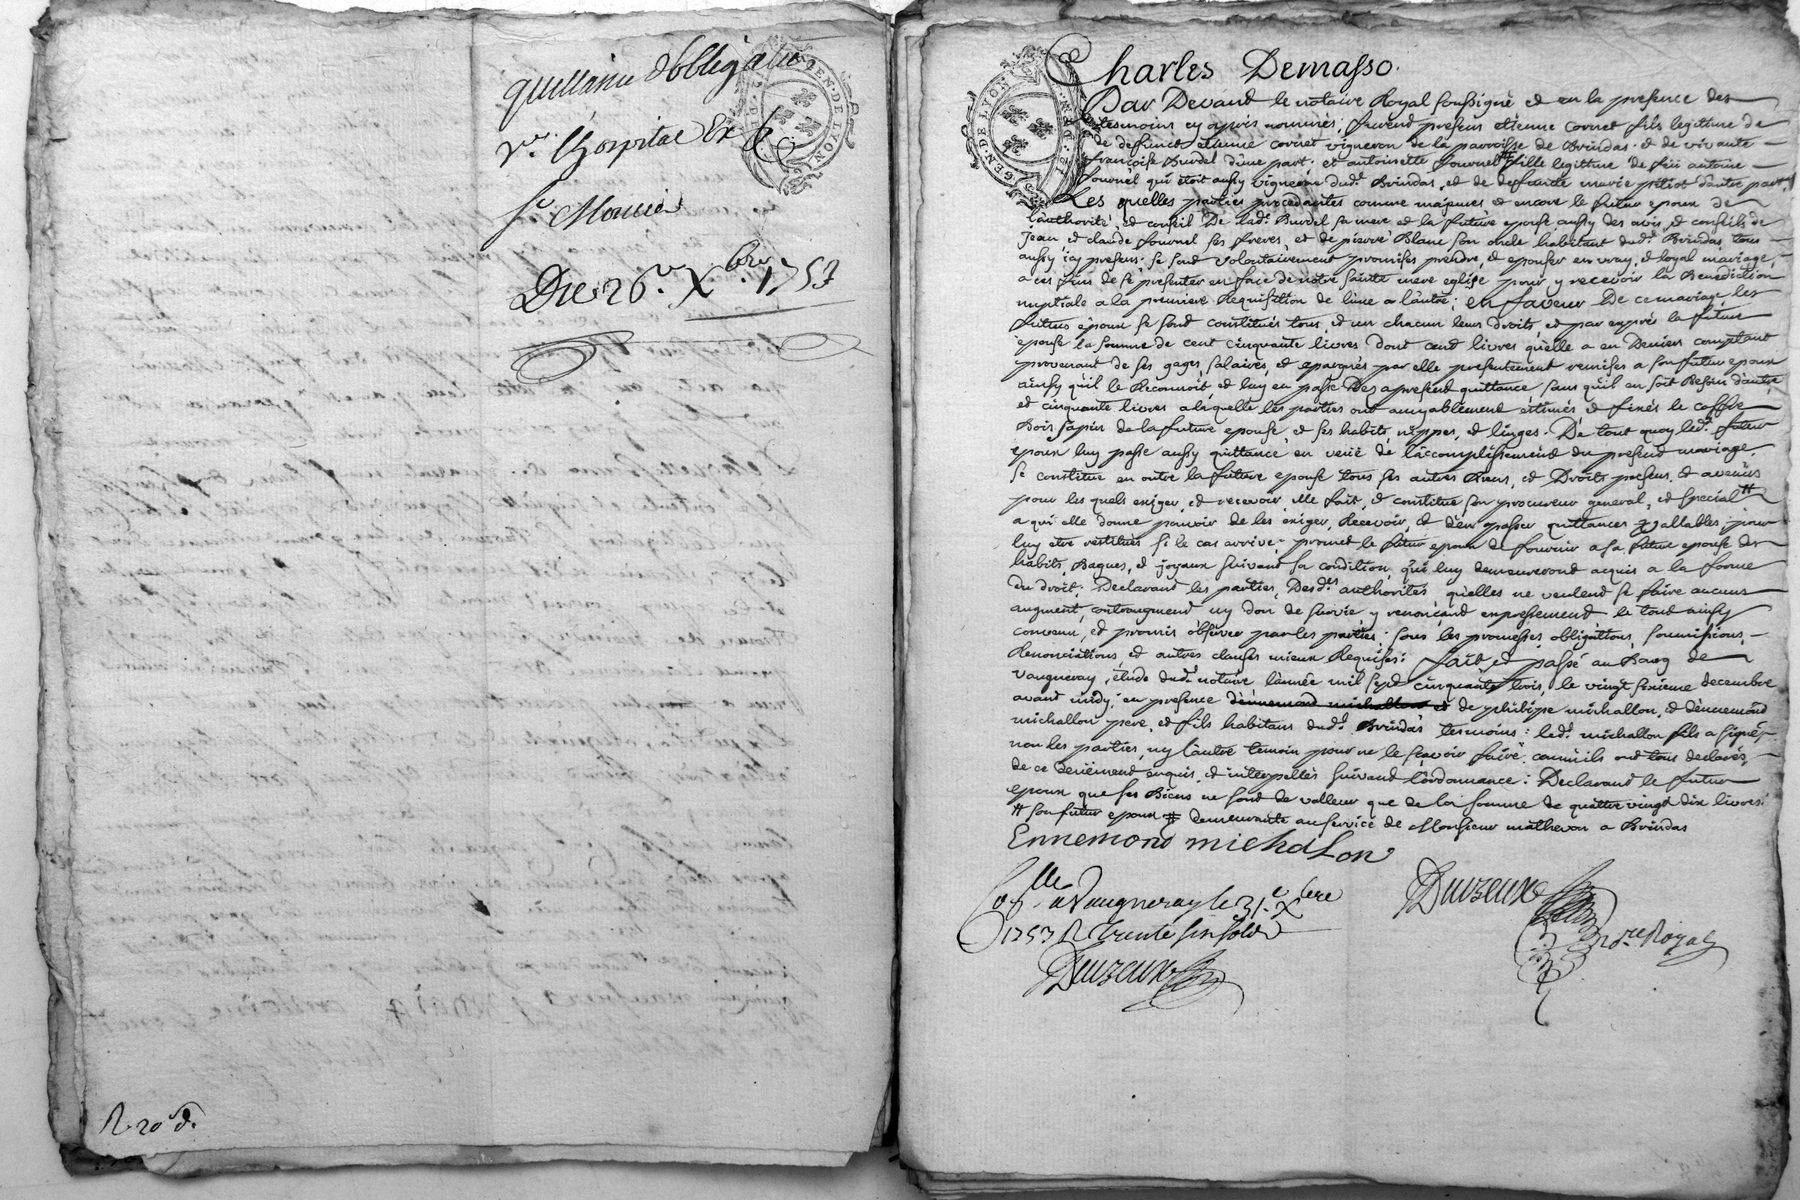 quittance obbligatre
pr. lhospital Ex
Sr Mouries
Du 26e Xbre 1753
R. 20s d.
GEN. DE LYON
GEN. DE LYON
Charles Demasso.
Par Devand le notaire Royal soussigné et en la presence des
tesmoins cy apres nommés; furend presens etienne corcret fils legitime de
de defunct etienne corcret vigneron de la parroisse de Brindas. et de vivante
françoise Burdel d'une part. et antoinette fournel # fille legitime de feu antoine
fournel qui etoit aussy vigneron dudt. Brindas, et de defunte marie pitiot d'autre part,
Les quelles parties procedantes comme majeures et encore le futur epoux de
l'authorité, et conseil De ladt. Burdel sa mere et la future epouse aussy des avis, et conseils de
Jean, et claude fournel ses freres, et de pierre Blanc son oncle habitant dudt. Brindas, tous
aussy icy presens. se sond volontairement promises prendre, et epouser en vray, et loyal mariage,
a ces fins de se presenter en face de notre sainte mere eglise pour y recevoir la Benediction
nuptiale a la premiere Requisition de l'une a l'autre; en faveur De ce mariage les
futurs epoux se sond constitués tous, et un chacun leurs droits, et par exprés la future
epouse la somme de cent cinquante livres dont cend livres qu'elle a en Deniers comptant
provenant de ses gages, salaires, et epargnes par elle presentement remises a son futur epoux
ainsy qu'il le Reconnoit, et luy en passe Des apresend quittance sans qu'il en soit Besoin d'autre,
et cinquante livres a laquelle les parties ont amyablement estimés et fixés le coffre
Bois sapin de la future epouse, et ses habits, nippes, et linges. De tout quoy ledt. futur
epoux luy passe aussy quittance en verité de l'accomplissement du presend mariage.
se constitue en outre la future epouse tous ses autres Biens, et Droits presens, et avenirs
pour les quels exiger, et recevoir elle fait, et constitue son procureur general, et special #
a qui elle donne pouvoir de les exiger, Recevoir, et d'en passer quittances vallables pour
luy etre restitués si le cas arrive. promet le futur epoux de fournir a sa future epouse des
habits, Bagues, et joyaux suivant sa condition, qui luy demeurerond acquis a la forme
du droit; Declarand les parties, Desdes. authorités, qu'elles ne veulend se faire aucuns
augment, contraugmend ny don de survie, y renonçand expressement. le tout ainsy
convenu, et promis observer par les parties. sous les promesses, obligations, soumissions,
Renonciations, et autres clauses mieux Requises: fait, et passé au Bourg de
vaugneray, etude dudt. notaire l'année mil sept cinquante trois, le vingt sixieme decembre
avant midy; en presence d'ennemond michallon et de philippe michallon, et d'ennemond
michallon pere, et fils habitans dudt. Brindas tesmoins: ledt. michallon fils a signé,
non les parties, ny l'autre temoin pour ne le sçavoir faire comm'ils ont tous declarés,
de ce deüement enquis, et interpellés suivand l'ordonnance: Declarand le futur
epoux que ses Biens ne sond de valleur que de la somme de quattre vingt dix livres.
# son futur epoux # demeurante au service de Monsieur mathevon a Brindas
Ennemond michalon
Collé a Vaugneray le 31e Xbre
1753 R trente six sols
Duvzeux
Duvzeux
nre Royal